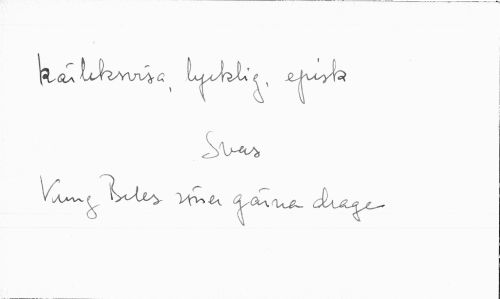 kärleksvisa, lycklig, episk
Svas
Kung Beles söner gärna drage